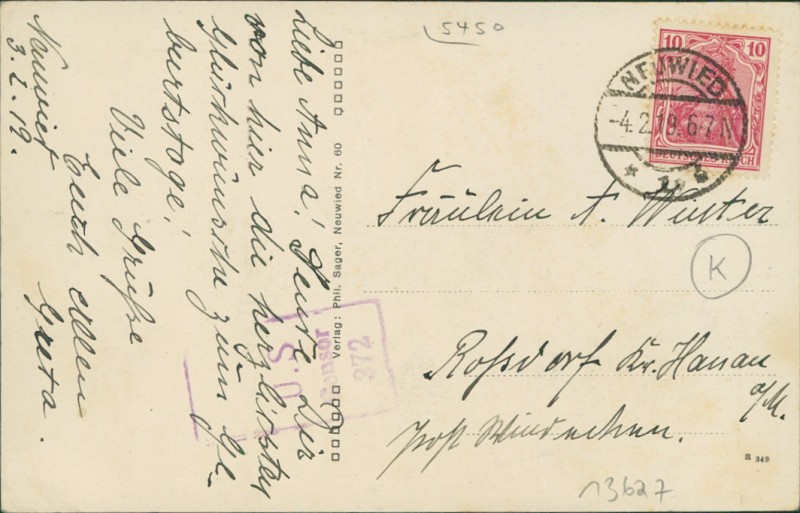 Neuwied
3.2.19.
Liebe Anna! Sende Dir
von hier die herzlichsten
Glückwünsche zum Ge-
burtstage!
Viele Grüße
Euch allen
Greta.
Verlag: Phil. Sager, Neuwied Nr. 60
U.S.
Censor
372
5450
10 10
DEUTSCHES REICH
NEUWIED
-4.2.19.6-7N
Fräulein A. Wuster
K
Roßdorf Kr. Hanau
a/M.
Post Windecken.
a 349
13627